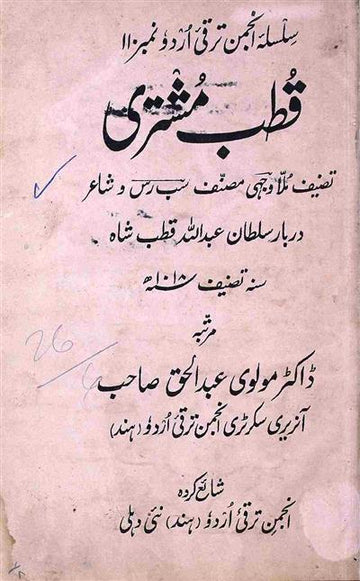 سلسلۂ انجمن ترقی اُردو نمبر ۱۱۰
قُطب مُشتری
تصنیف مُلّا وجہی مصنّف سب رس و شاعر
دربار سلطان عبداللہ قطب شاہ
سنہ تصنیف ۱۰۱۸ھ
مرتبّہ
ڈاکٹر مولوی عبدالحق صاحب
آنریری سکرٹری انجمن ترقی اُردو (ہند)
شائع کردہ
انجمن ترقی اُردو (ہند) نئی دہلی
26